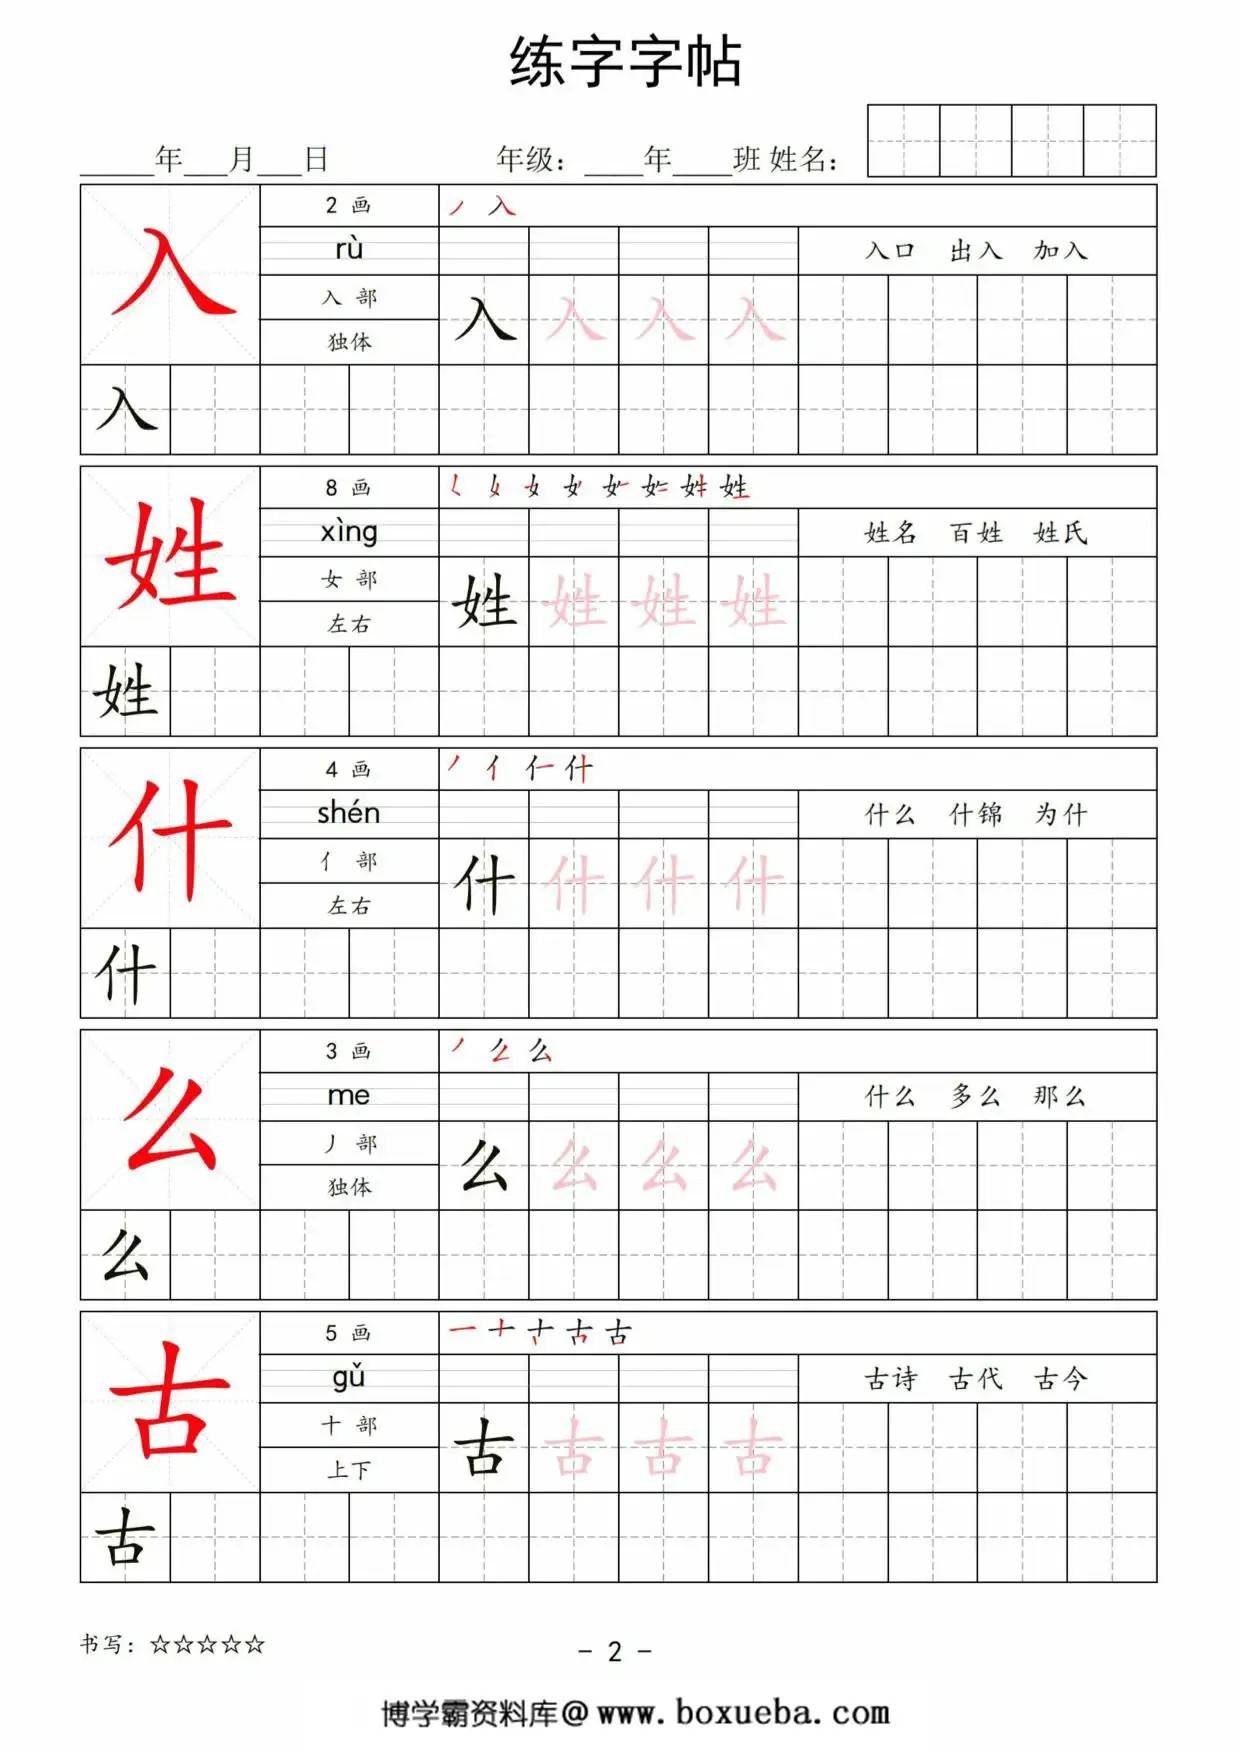 练字字帖
_____年___月___日 年级：____年____班 姓名：
入 2 画 丿 入
rù 入口 出入 加入
入 部 入 入 入 入
独体
入
姓 8 画
xìng 姓名 百姓 姓氏
女 部 姓 姓 姓 姓
左右
姓
什 4 画 丿 亻 仁 什
shén 什么 什锦 为什
亻 部 什 什 什 什
左右
什
么 3 画
me 什么 多么 那么
丿 部 么 么 么 么
独体
么
古 5 画
gǔ 古诗 古代 古今
十 部 古 古 古 古
上下
古
书写：☆☆☆☆☆
- 2 -
博学霸资料库@www.boxueba.com